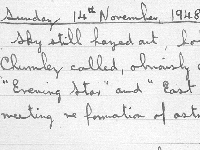 Sunday, 14th November, 1948
Sky still hazed out,
Chumley called, obviously
"Evening Star" and "East
meeting re formation of astr